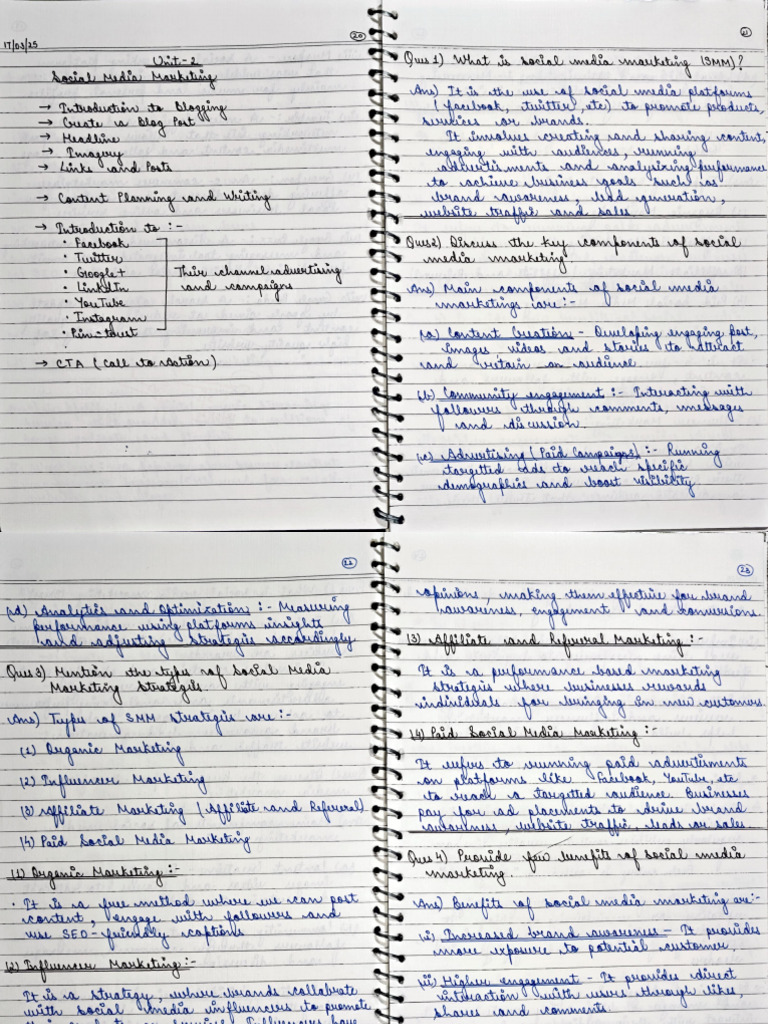 17/03/25
20
Unit-2
Social Media Marketing
→ Introduction to Blogging
→ Create a Blog Post
→ Headline
→ Imagery
→ Links and Posts
→ Content Planning and Writing
→ Introduction to :-
• Facebook
• Twitter
• Google+
• LinkedIn
• YouTube
• Instagram
• Pinterest
Their channel advertising
and campaigns
→ CTA (Call to Action)
21
Ques 1) What is social media marketing (SMM)?
Ans) It is the use of social media platforms
(facebook, twitter, etc) to promote products,
services or brands.
It involves creating and sharing content,
engaging with audiences, running
advertisments and analyzing performance
to achieve business goals such as
brand awareness, lead generation,
website traffic and sales.
Ques2) Discuss the key components of social
media marketing
Ans) Main components of social media
marketings are:-
(a) Content Creation - Developing engaging post,
images, videos and stories to attract
and retain an audience.
(b) Community engagement :- Interacting with
followers through comments, messages
and discussion.
(c) Advertising (Paid Campaigns) :- Running
targetted ads to reach specific
demographics and boost visibility
22
(d) Analytics and Optimization :- Measuring
performance using platforms insights
and adjusting strategies accordingly
Ques 3) Mention the types of Social Media
Marketing Strategies.
Ans) Types of SMM strategies are:-
(1) Organic Marketing
(2) Influencer Marketing
(3) Affiliate Marketing (Affiliate and Referral)
(4) Paid Social Media Marketing
(1) Organic Marketing :-
• It is a free method where we can post
content, engage with followers and
use SEO-friendly captions
(2) Influencer Marketing:-
It is a strategy, where brands collabrate
with social media influencers to promote
23
opinions, making them effective for brand
awareness, engagement and conversions.
13) Affiliate and Referral Marketing :-
It is a performance based marketing
strategies where businesses rewards
individuals for bringing in new customers.
14) Paid Social Media Marketing :-
It refers to running paid advertisments
on platforms like Facebook, YouTube, etc
to reach a targetted audience. Businesses
pay for ad placements to drive brand
awareness, website traffic, leads or sales
Ques 4) Provide few benefits of social media
marketing.
Ans) Benefits of social media marketing are:-
(i) Increased brand awareness - It provides
more exposure to potential customer.
(ii) Higher engagement - It provides direct
interaction with users through likes,
shares and comments.